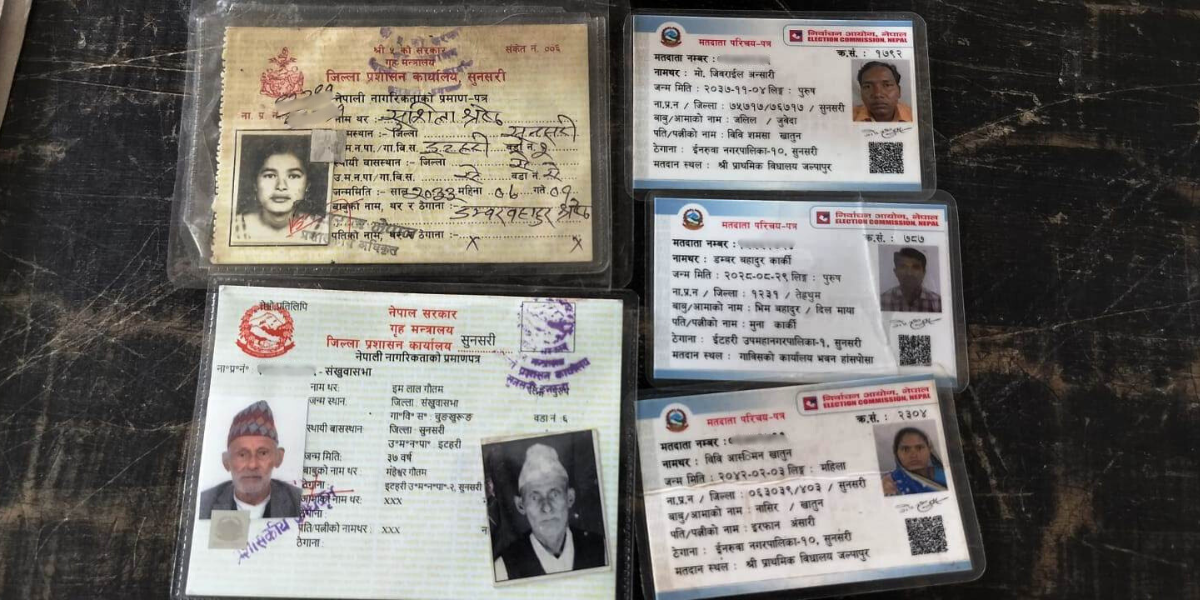 श्री ५ को सरकार
संकेत नं. ००६
गृह मन्त्रालय
जिल्ला प्रशासन कार्यालय, सुनसरी
नेपाली नागरिकताको प्रमाण-पत्र
ना. प्र. नं.
नाम थर :- सुशिला श्रेष्ठ
जन्मस्थान :- जिल्ला सुनसरी
उ.म.न.पा. / गा.बि.स. इटहरी वडा नं. २
स्थायी बासस्थान :- जिल्ला
उ.म.न.पा / गा.बि.स. वडा नं.
जन्ममिति :- साल २०३३ महिना ०६ गते ०१
बाबुको नाम, थर र ठेगाना :- डम्बर बहादुर श्रेष्ठ
पतिको नाम, थर र ठेगाना :- x x
प्रतिलिपि
नेपाल सरकार
गृह मन्त्रालय
जिल्ला प्रशासन कार्यालय सुनसरी
नेपाली नागरिकताको प्रमाणपत्र
ना॰प्र॰नं॰ -संखुवासभा
नाम थर: इम लाल गौतम
जन्म स्थान: जिल्ला: संखुवासभा
गा॰वि॰स॰ वडा नं : ६
स्थायी बासस्थान: जिल्ला: सुनसरी
उ॰म॰न॰पा॰ इटहरी
जन्म मिति: ३७ वर्ष
बाबुको नाम थर मंहेश्वर गौतम
ठेगाना: इटहरी उ॰म॰न॰पा॰-२, सुनसरी
आमाको नाम थर: xxx
ठेगाना:
पति/पत्नीको नामथर: xxx
ठेगाना:
मतदाता परिचय-पत्र
निर्वाचन आयोग, नेपाल
ELECTION COMMISSION, NEPAL
मतदाता नम्बर :
क्र.सं. : १७९२
नामथर : मो. जिवराईल अन्सारी
जन्म मिति : २०३७-११-०४ लिङ्ग : पुरुष
ना.प्र.न / जिल्ला : ७५७१७/७६७१७ / सुनसरी
बाबु/आमाको नाम : जलिल / जुवेदा
पति/पत्नीको नाम : विवि शमसा खातुन
ठेगाना : ईनरुवा नगरपालिका-१०, सुनसरी
मतदान स्थल : श्री प्राथमिक विद्यालय जल्पापुर
मतदाता परिचय-पत्र
निर्वाचन आयोग, नेपाल
ELECTION COMMISSION, NEPAL
मतदाता नम्बर :
क्र.सं. : ७८७
नामथर : डम्बर बहादुर कार्की
जन्म मिति : २०२८-०८-२९ लिङ्ग : पुरुष
ना.प्र.न / जिल्ला : १२३१ / तेह्रथुम
बाबु/आमाको नाम : भिम बहादुर / दिल माया
पति/पत्नीको नाम : मुना कार्की
ठेगाना : ईटहरी उपमहानगरपालिका-१, सुनसरी
मतदान स्थल : गाविसको कार्यालय भवन हांसपोसा
मतदाता परिचय-पत्र
निर्वाचन आयोग, नेपाल
ELECTION COMMISSION, NEPAL
मतदाता नम्बर :
क्र.सं. : २३०४
नामथर : विवि खातुन
जन्म मिति : २०४२-०२-०३ लिङ्ग : महिला
ना.प्र.न / जिल्ला : ०६३०३९/४०३ / सुनसरी
बाबु/आमाको नाम : नासिर / खातुन
पति/पत्नीको नाम : इरफान अंसारी
ठेगाना : ईनरुवा नगरपालिका-१०, सुनसरी
मतदान स्थल : श्री प्राथमिक विद्यालय जल्पापुर